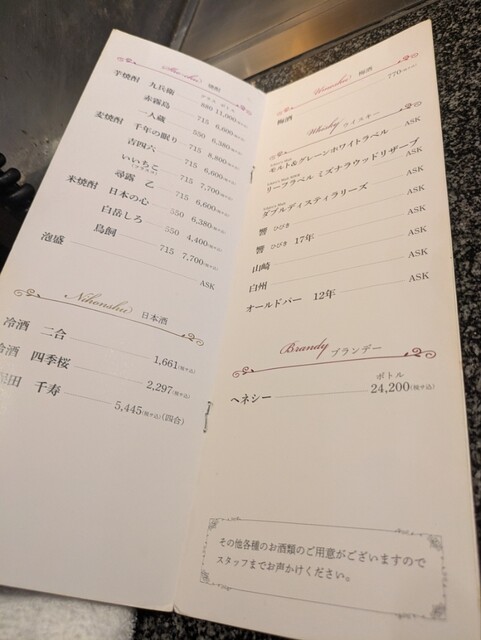 Sho-chu 焼酎
グラス ボトル
芋焼酎 九兵衛 880 11,000(税サ込)
赤霧島 715 6,600(税サ込)
一人蔵 550 6,380(税サ込)
麦焼酎 千年の眠り 715 8,800(税サ込)
吉四六 715 6,600(税サ込)
いいちこ 715 7,700(税サ込)
尋露 乙 715 6,600(税サ込)
米焼酎 日本の心 550 6,380(税サ込)
白岳しろ 550 4,400(税サ込)
鳥飼 715 7,700(税サ込)
泡盛 ASK
Nihonshu 日本酒
冷酒 二合 1,661(税サ込)
冷酒 四季桜 2,297(税サ込)
田 千寿 5,445(税サ込)(四合)
Umeshu 梅酒
梅酒 770(税サ込)
Whisky ウイスキー
モルト&グレーンホワイトラベル ASK
リーフラベル ミズナラウッドリザーブ ASK
ダブルディスティラリーズ ASK
響 ひびき ASK
響 ひびき 17年 ASK
山崎 ASK
白州 ASK
オールドパー 12年 ASK
Brandy ブランデー
ボトル
ヘネシー 24,200(税サ込)
その他各種のお酒類のご用意がございますので
スタッフまでお声かけください。